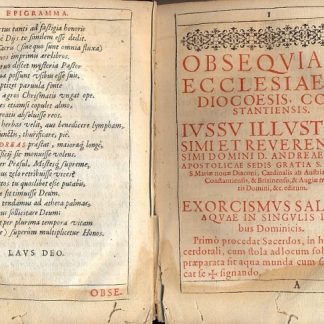 EPIGRAMMA.
tus tanti ad fastigia honoris
Dijs te similem esse dedit.
Sacru (sine quo sunt omnia fluxa)
nos imprimis arelibros.
rus distet mysteria Pastor
possunt vsibus esse suis,
ptizet paruula sonte
agros Chrismatis vngat ope.
es etiamsi copulet almo,
reatu, absoluatque reos.
herbas velit, aut benedicere lympham,
functis, thurificare, pie.
DREAS præstat, maioraq, longè,
si te monuisse velens.
Præsul, Mystesq, supreme,
cta, vmbrosis velle latere
os in quolibet esse putato,
te timuisse Deum.
tendamus ad æthera palmas,
us sollicitare Deum:
per plurima tempora vitam
superum multiplicetur Honos.
LAVS DEO.
OBSE-
1
OBSEQVIA
ECCLESIAE
DIOCOESIS, CO
STANTIENSIS.
IVSSV ILLVST
SIMI ET REVEREN
SIMI DOMINI D. ANDREAE
APOSTOLICAE SEDIS GRATIA S.
S. Mariæ nouæ Diaconi, Cardinalis ab Austria
Constantiensis, & Brixinensis, & Augiæ
tis Domini, &c. editum.
EXORCISMVS SAL
AQVAE IN SINGVLIS
bus Dominicis.
Primò procedat Sacerdos, in h
cerdotali, cum stola ad locum sol
præparata sit aqua munda cum
cat se ✠ signando.
A